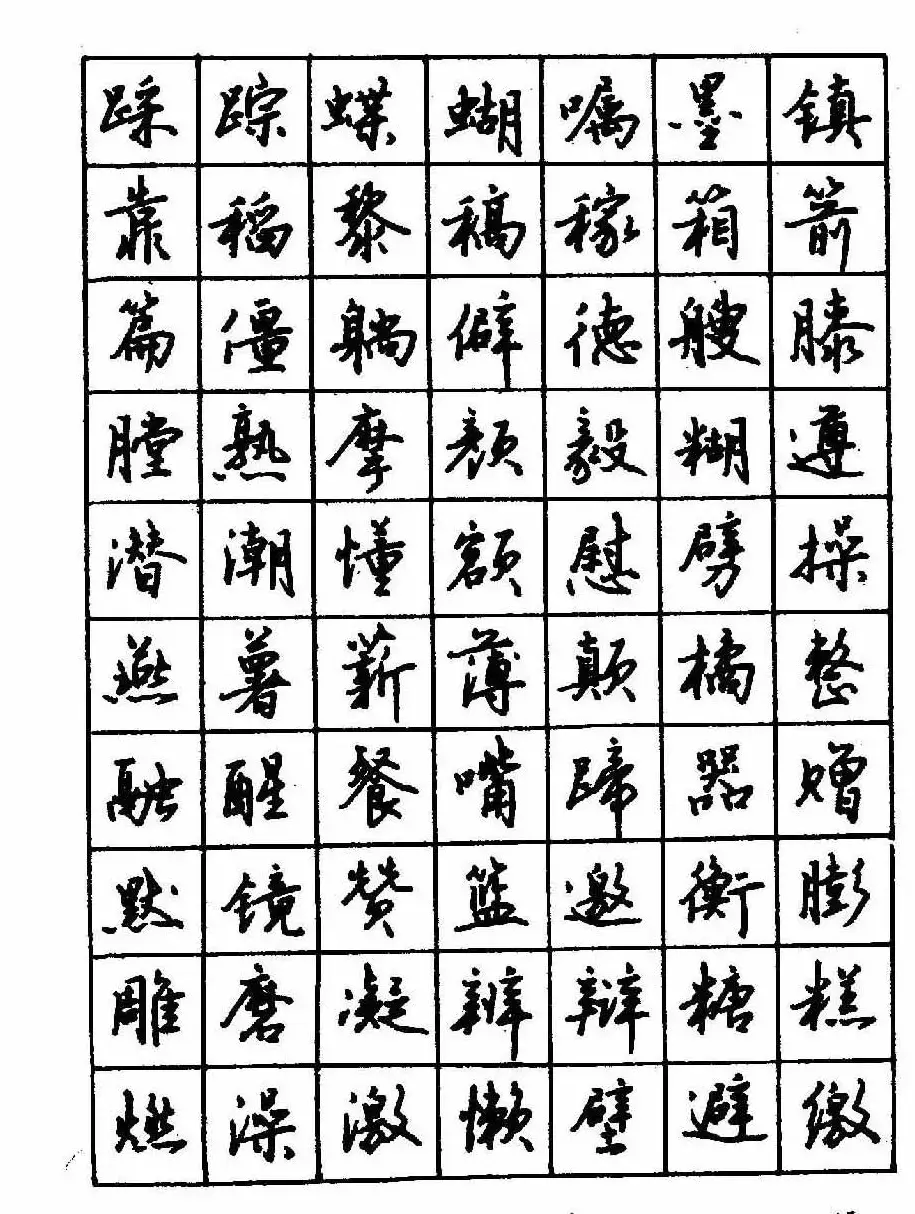 踩踪蝶蝴嘱墨镇
靠稻黎稿稼箱箭
篇僵躺僻德艘膝
膛熟摩颜毅糊遵
潜潮懂额慰劈操
燕薯薪薄颠橘整
融醒餐嘴蹄器赠
默镜赞篮邀衡膨
雕磨凝辨辩糖糕
燃澡激懒壁避缴